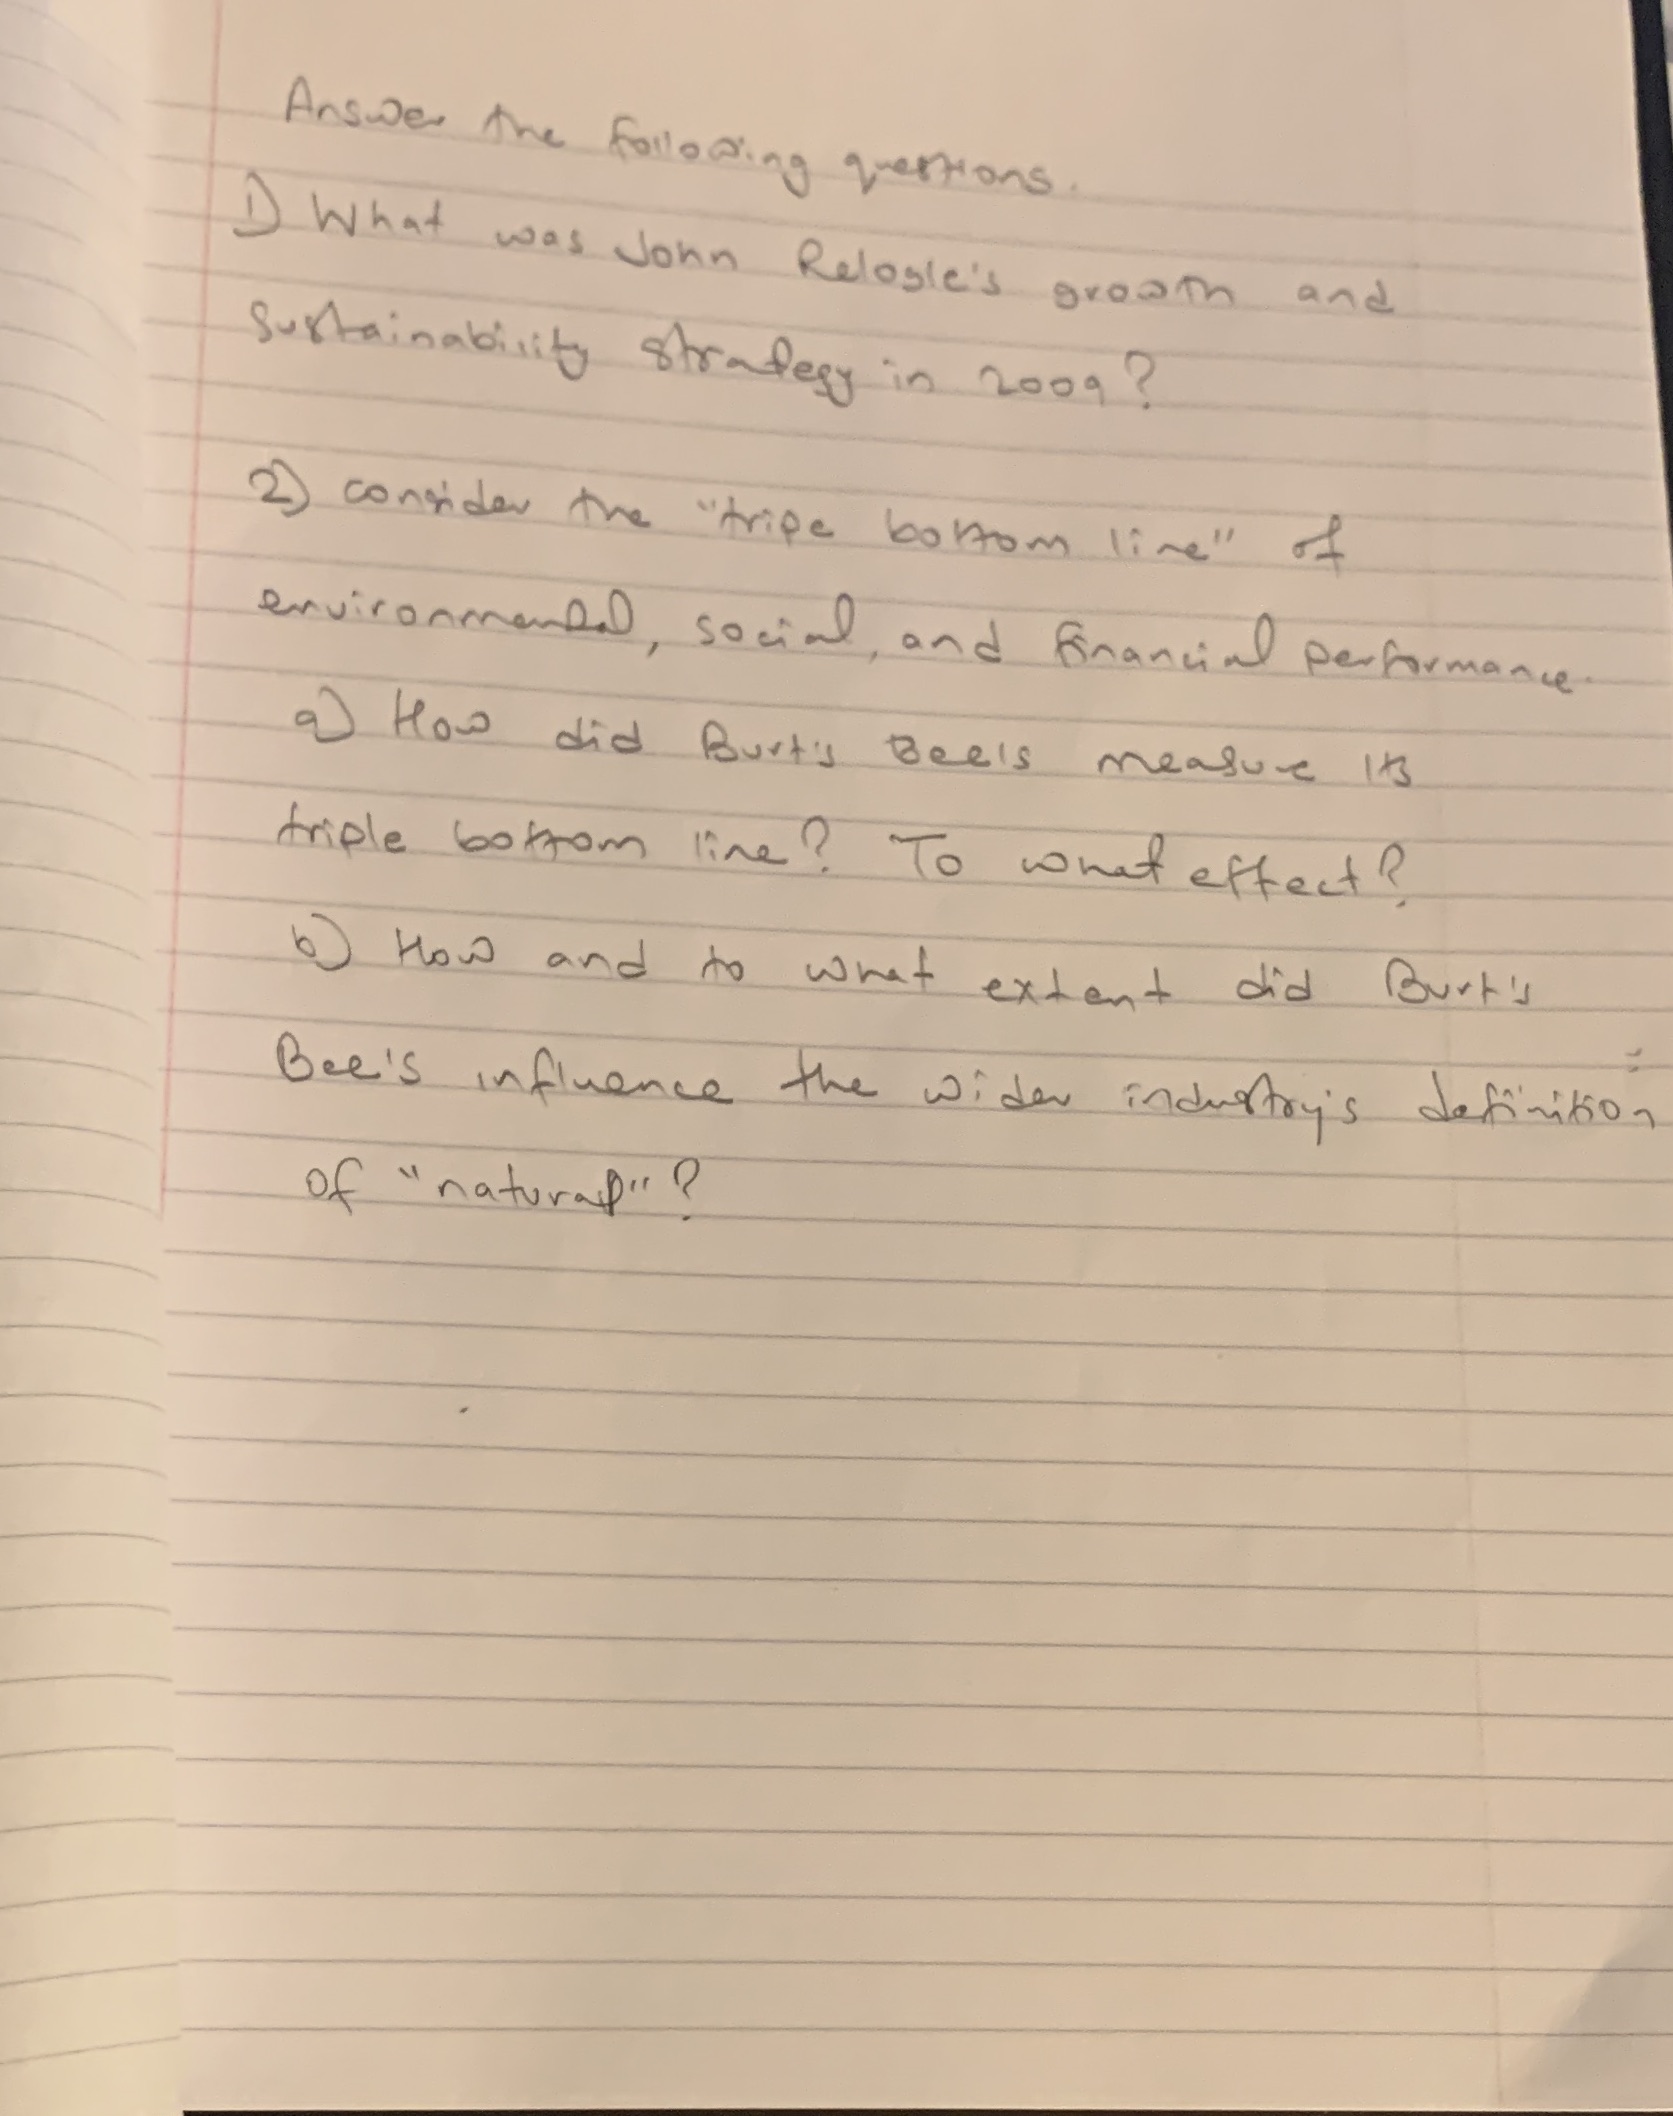 Answer the following questions.
1) What was John Relogle's growth and
sustainability strategy in 2009?
2) consider the "tripe bottom line" of
environmental, social, and financial performance.
a) How did Burt's Bee's measure its
triple bottom line? To what effect?
b) How and to what extent did Burt's
Bee's influence the wider industry's definition
of "natural"?